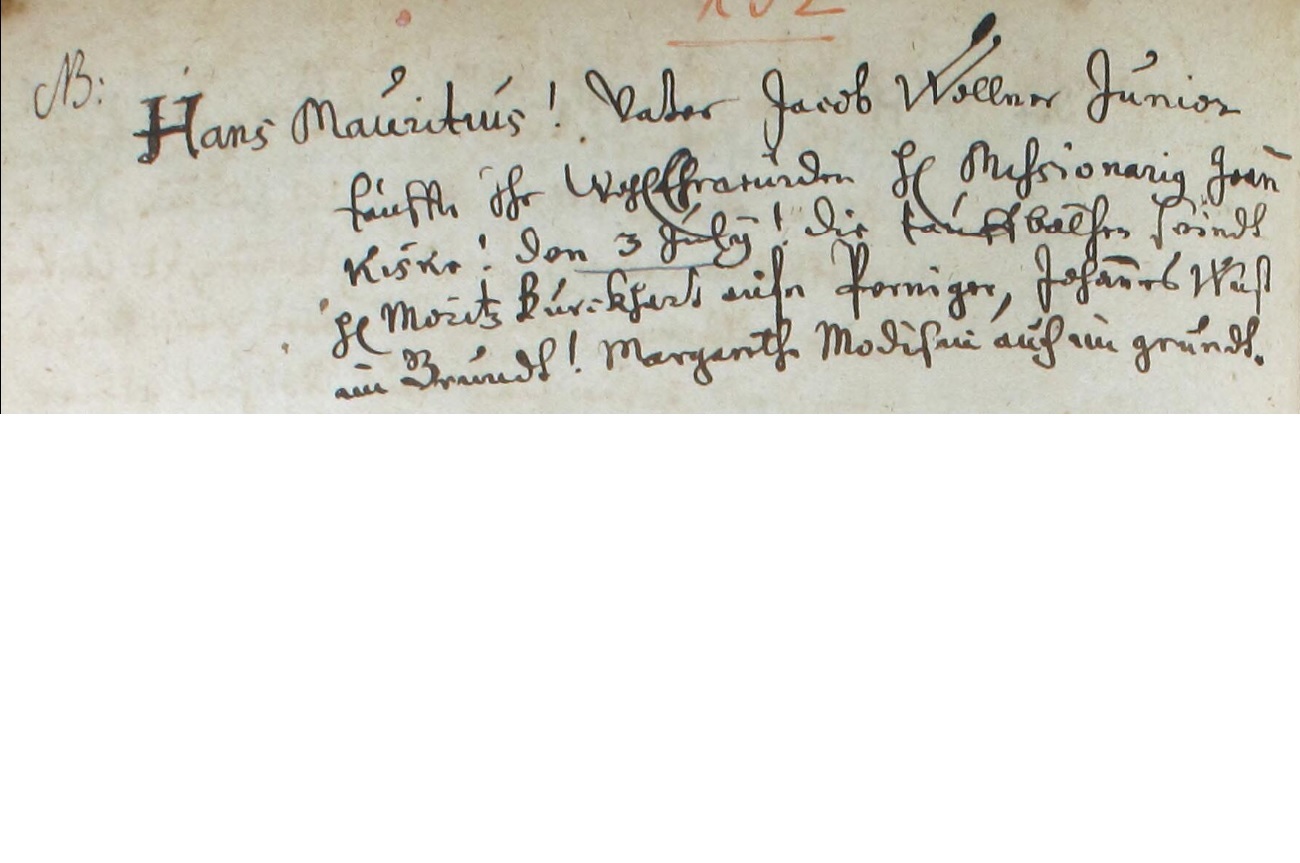 NB: Hans Mauritius! Vater Jacob Wollner Junior
tauffte ihr WohlEhrwürden H. Missionarig Joan
Kiske! den 3 July! die tauffbathen seindt
H. Moritz Burckhert aufn Perniger, Johannes Wüst
im Grundt! Margareth Modissin auch im grundt.